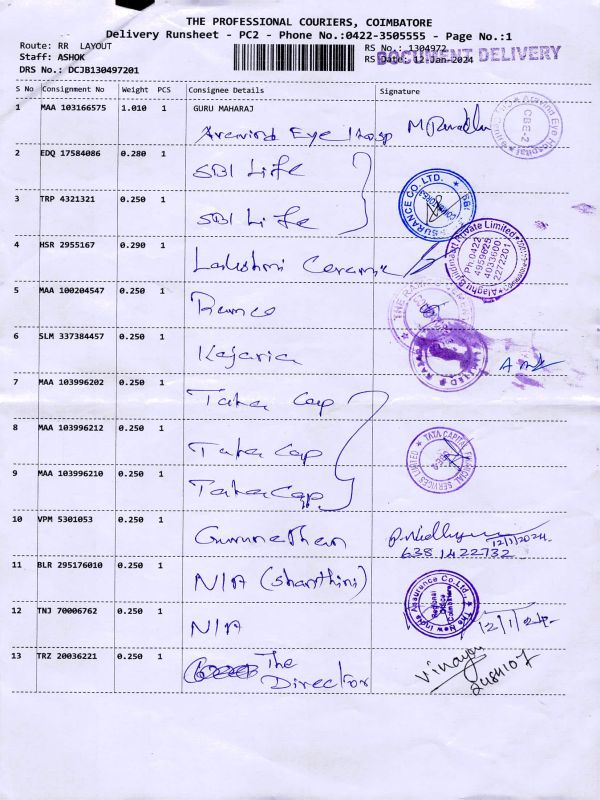 THE PROFESSIONAL COURIERS, COIMBATORE
Delivery Runsheet - PC2 - Phone No.:0422-3505555 - Page No.:1
Route: RR LAYOUT
RS No.: 1304972
Staff: ASHOK
RS Date: 12-Jan-2024
DOCUMENT DELIVERY
DRS No.: DCJB130497201
S No Consignment No Weight PCS Consignee Details Signature
1 MAA 103166575 1.010 1 GURU MAHARAJ
Aravind Eye Hosp
Aravind Eye Hospital CBE-2
2 EDQ 17584086 0.280 1 SBI Life
3 TRP 4321321 0.250 1 SBI Life
SURANCE CO. LTD.
4 HSR 2955167 0.290 1 Lakshmi Ceramic
Private Limited
Ph:0422
4959825
4033900
2272201
5 MAA 100204547 0.250 1 Ramco
THE RAM
6 SLM 337384457 0.250 1 Kajaria
LIMITED
7 MAA 103996202 0.250 1 Tata Cap
8 MAA 103996212 0.250 1 Tata Cap
TATA CAPITAL FINANCIAL SERVICES LIMITED
9 MAA 103996210 0.250 1 Tata Cap
10 VPM 5301053 0.250 1 Gurunathan
12/1/2024
6381422732
11 BLR 295176010 0.250 1 NIA (Shanthini)
The New India Assurance Co.Ltd.,
Regional
Office
Coimbatore
12 TNJ 70006762 0.250 1 NIA 12/1/24
13 TRZ 20036221 0.250 1 The
Director
Vinayan